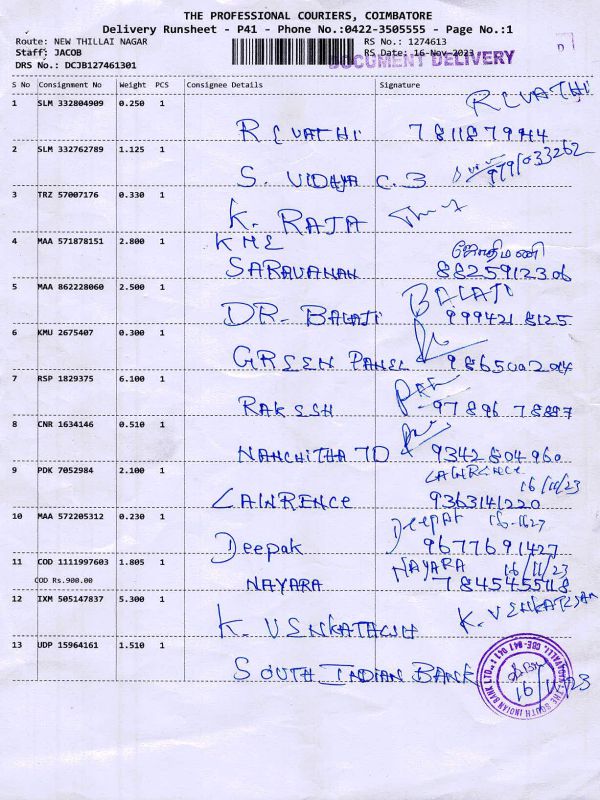 THE PROFESSIONAL COURIERS, COIMBATORE
Delivery Runsheet - P41 - Phone No.:0422-3505555 - Page No.:1
Route: NEW THILLAI NAGAR RS No.: 1274613
Staff: JACOB RS Date: 16-Nov-2023
DOCUMENT DELIVERY
DRS No.: DCJB127461301
S No Consignment No Weight PCS Consignee Details Signature
1 SLM 332804909 0.250 1 REVATHI
REVATHI 7811879944
2 SLM 332762789 1.125 1 9791033262
S. VIDHYA C.3
3 TRZ 57007176 0.330 1
K. RAJA
4 MAA 571878151 2.800 1 KME ஜோதிமணி
SARAVANAN 8825912306
5 MAA 862228060 2.500 1 BALAJI
DR- BALAJI 999421 8125
6 KMU 2675407 0.300 1
GREEN PANEL
7 RSP 1829375 6.100 1
RAKESH 97896 78897
8 CNR 1634146 0.510 1
NANCHITHA TD 9342804960
9 PDK 7052984 2.100 1 LAWRENCE 16/11/23
LAWRENCE 9363141220
10 MAA 572205312 0.230 1 Deepak
Deepak 9677691427
11 COD 1111997603 1.805 1 NAYARA 16/11/23
COD Rs.900.00
NAYARA 7845455118
12 IXM 505147837 5.300 1 K. VENKATESAN
K. VENKATESH
13 UDP 15964161 1.510 1
SOUTH INDIAN BANK 16/11/23
THE SOUTH INDIAN BANK LTD